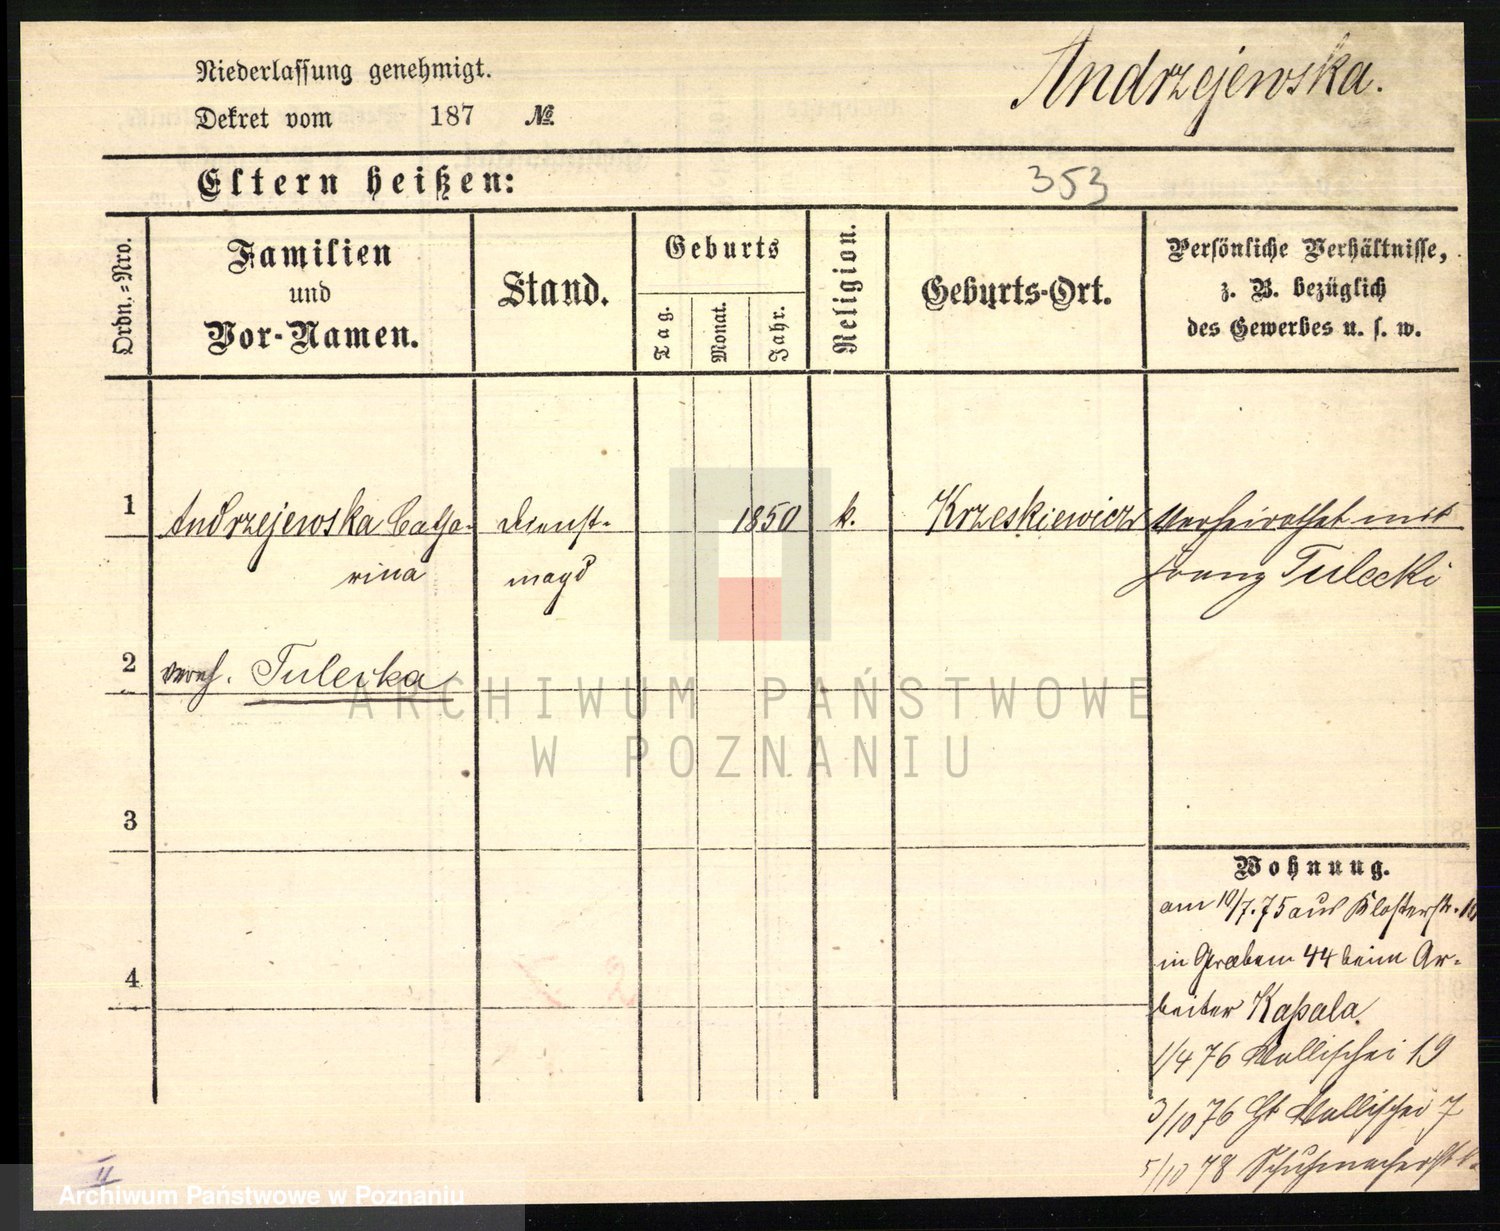 Niederlassung genehmigt.
Andrzejewska.
Dekret vom 187 №
Eltern heißen:
353
Ordn.=Nro.
Familien
und
Vor-Namen.
Stand.
Geburts
Tag.
Monat.
Jahr.
Religion.
Geburts-Ort.
Persönliche Verhältnisse,
z. B. bezüglich
des Gewerbes u. s. w.
1 Andrzejewska Catha- Dienst- 1850 k. Krzeskiewicz Verheirathet mit
rina magd Franz Tulecki
2 verh. Tulecka
3
4
Wohnung.
am 10/7.75 aus Klosterstr. 
in Graben 44 beim Ar-
beiter Kapala
1/4 76 Wallischei 19
3/10 76 Wallischei 7
5/10 78 Schuhmacherstr
ARCHIWUM PAŃSTWOWE
W POZNANIU
Archiwum Państwowe w Poznaniu